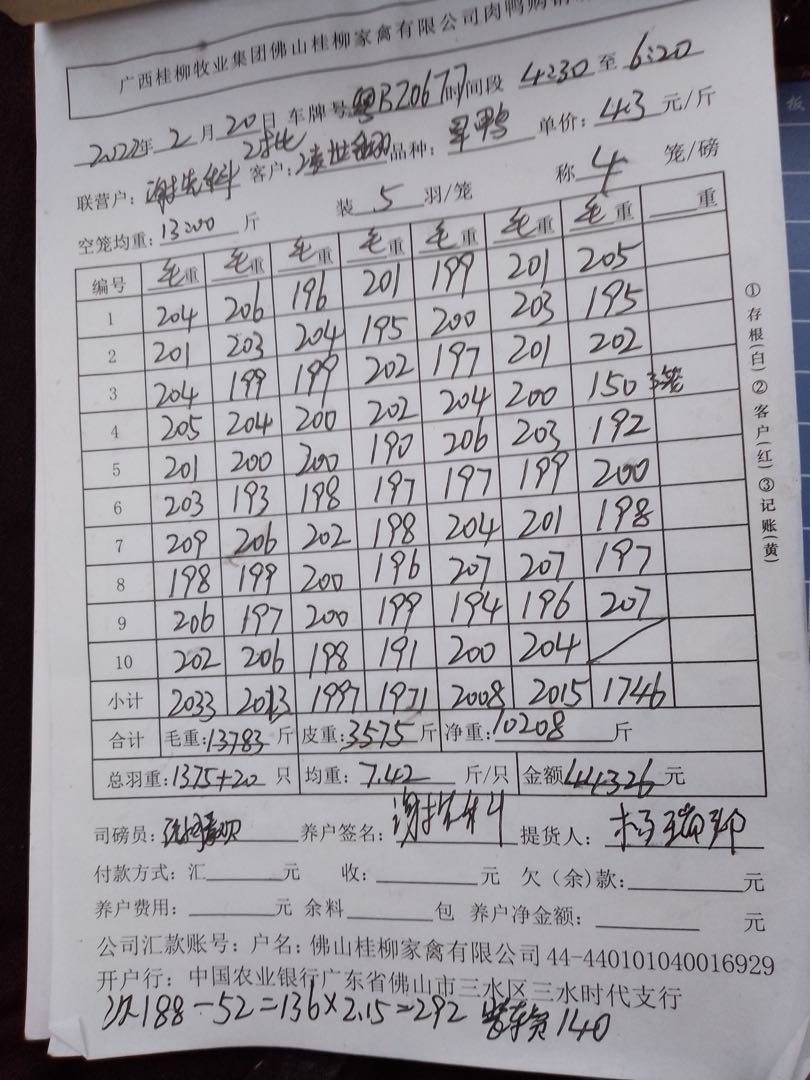 广西桂柳牧业集团佛山桂柳家禽有限公司肉鸭购销
2022年 2 月 20 日 车牌号 粤BZ0677 时间段 4:30 至 6:20
联营户: 客户: 品种: 单价: 4.3 元/斤
空笼均重: 13.00 斤 装 5 羽/笼 称 4 笼/磅
编号 毛重 毛重 毛重 毛重 毛重 毛重 毛重 重
1 204 206 196 201 199 201 205
2 201 203 204 195 200 203 195
3 204 199 199 202 197 201 202
4 205 204 200 202 204 200 150 3笼
5 201 200 200 190 206 203 192
6 203 193 198 197 197 199 200
7 209 206 202 198 204 201 198
8 198 199 200 196 207 207 197
9 206 197 200 199 194 196 207
10 202 206 198 191 200 204
小计 2033 2013 1997 1971 2008 2015 1746
合计 毛重:13783 斤 皮重:3575 斤 净重:10208 斤
总羽重:1375+20 只 均重: 7.42 斤/只 金额 44326 元
司磅员: 养户签名: 提货人:
付款方式: 汇 元 收: 元 欠(余)款: 元
养户费用: 元 余料 包 养户净金额: 元
公司汇款账号: 户名: 佛山桂柳家禽有限公司 44-440101040016929
开户行: 中国农业银行广东省佛山市三水区三水时代支行
188-52=136×2.15=292 140
①存根(白)②客户(红)③记账(黄)